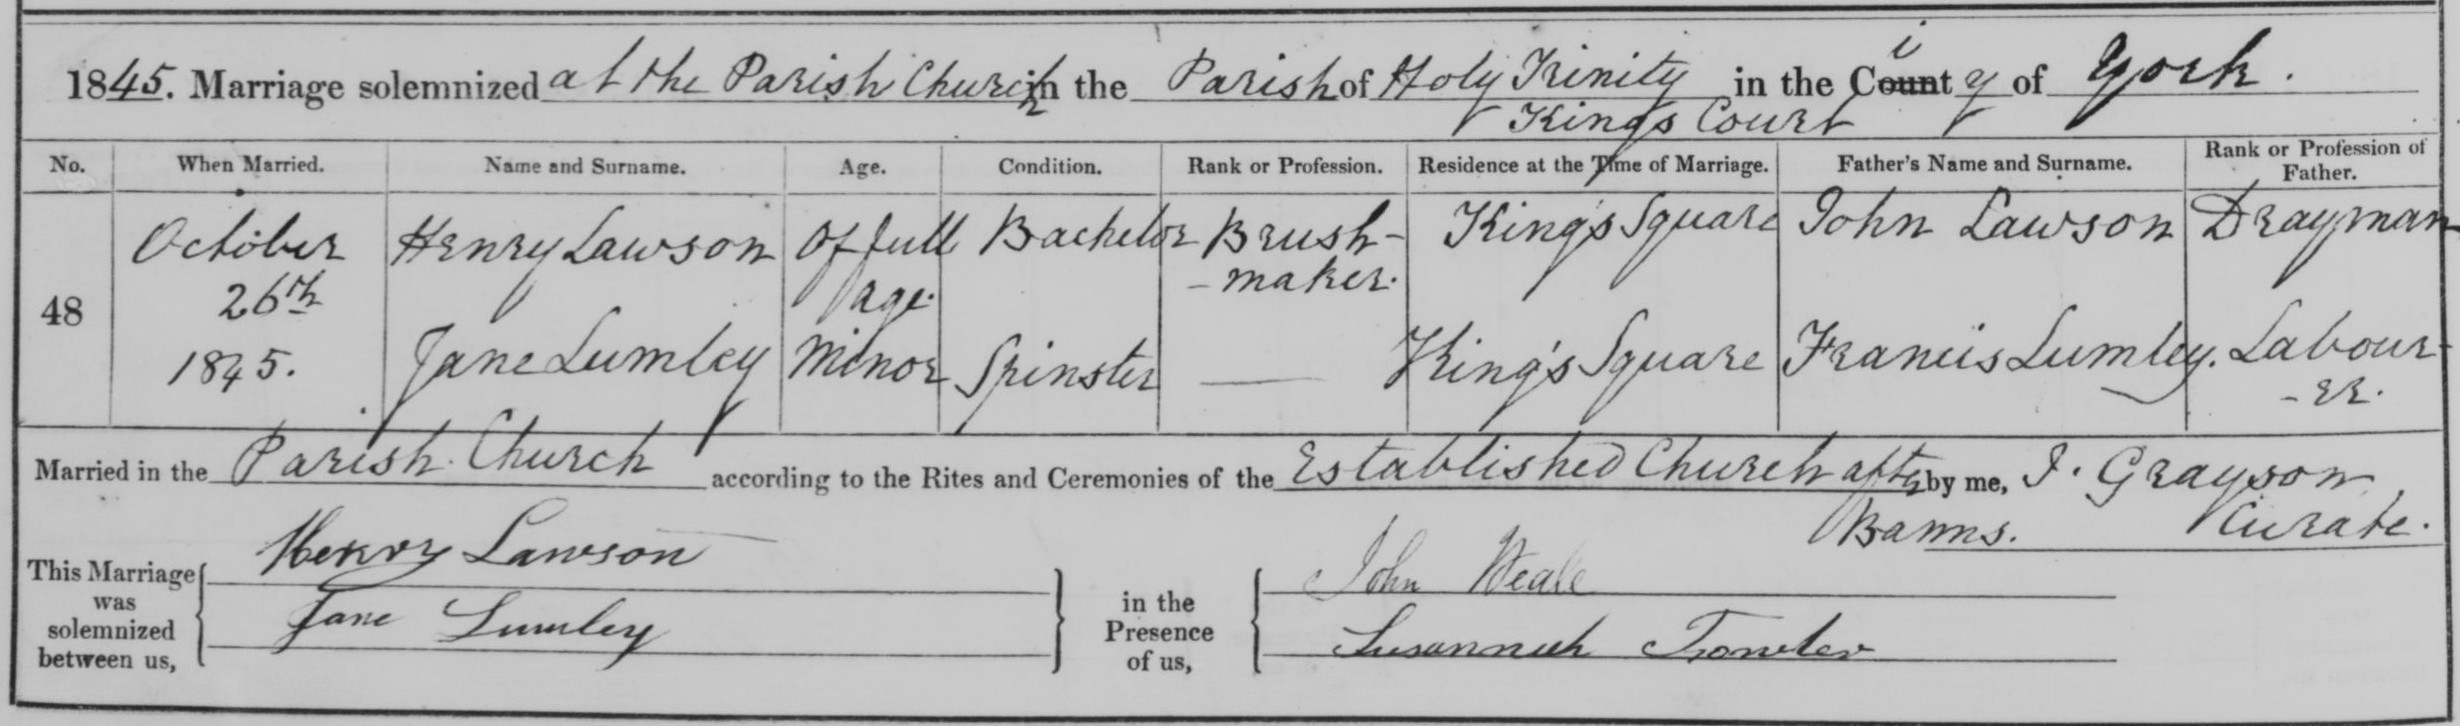 1845. Marriage solemnized at the Parish Church in the Parish of Holy Trinity in the City of York.
Kings Court
No. When Married. Name and Surname. Age. Condition. Rank or Profession. Residence at the Time of Marriage. Father's Name and Surname. Rank or Profession of Father.
October Henry Lawson Of full Bachelor Brush- King's Square John Lawson Drayman
26th age. -maker.
48
1845. Jane Lumley Minor Spinster King's Square Francis Lumley. Labour-
-er.
Married in the Parish Church according to the Rites and Ceremonies of the Established Church after by me, J. Grayson
Banns. Curate.
Henry Lawson John Weale
This Marriage was solemnized between us, in the Presence of us,
Jane Lumley Susannah Fowler